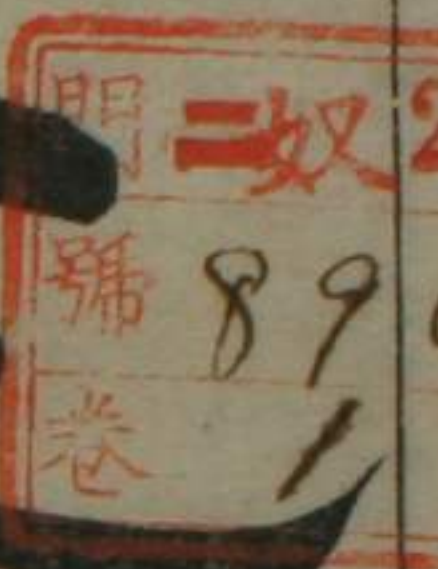 門 二奴
號 89
卷 1